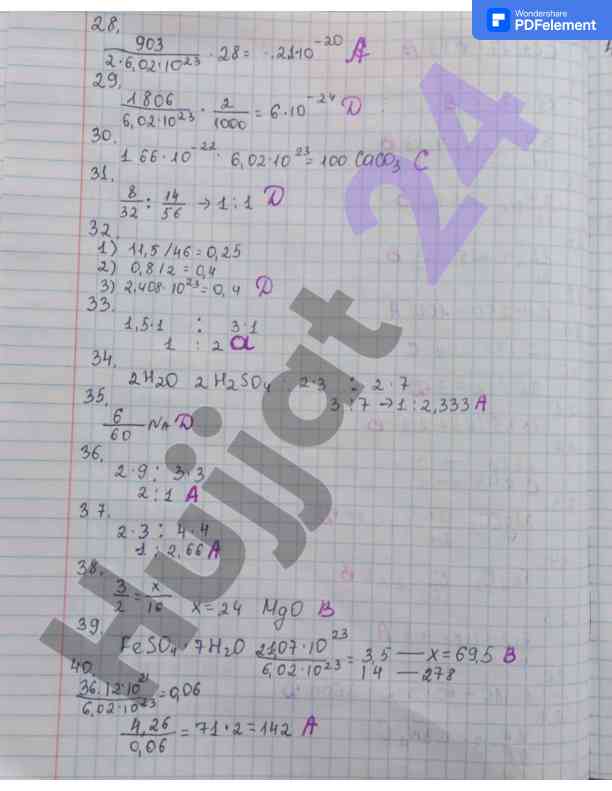 Wondershare
PDFelement
28.
903 / 2·6,02·10²³ · 28 = ·.21·10⁻²⁰ A
29.
1806 / 6,02·10²³ · 2/1000 = 6·10⁻²⁴ D
30.
1 66·10⁻²² · 6,02·10²³ = 100 CaCO₃ C
31.
8/32 : 14/56 → 1:1 D
32.
1) 11,5/46 = 0,25
2) 0,8/2 = 0,4
3) 2,408·10²³ = 0,4 D
33.
1,5·1 : 3·1
1 : 2 a
34.
2H₂O 2H₂SO₄ 2·3 : 2·7
3:7 → 1:2,333 A
35.
6/60 NA D
36.
2·9 : 3·3
2:1 A
37.
2·3 : 4·4
1 : 2,66 A
38.
3/2 = x/16 x = 24 MgO B
39.
FeSO₄·7H₂O 2107·10²³ / 6,02·10²³ = 3,5 — x = 69,5 B
14 — 278
40.
36.12·10²¹ / 6,02·10²³ = 0,06
4,26 / 0,06 = 71·2 = 142 A
Hujjat 24